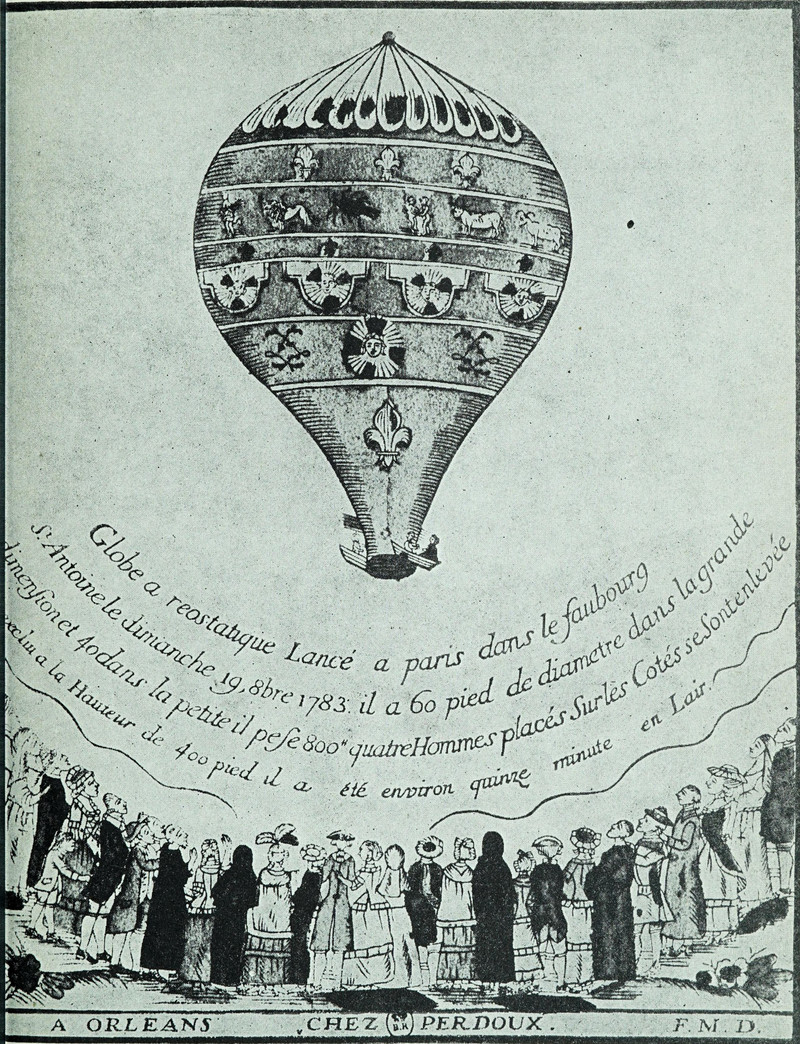 Globe a reostatique Lancé a paris dans le faubourg
St Antoine le dimanche 19. 8bre 1783. il a 60 pied de diametre dans la grande
dimension et 40 dans la petite il pese 800" quatre Hommes placés Sur les Cotés se Sont enlevée
a la Hauteur de 400 pied il a été environ quinze minute en Lair.
A ORLEANS CHEZ PERDOUX. F. M. D.